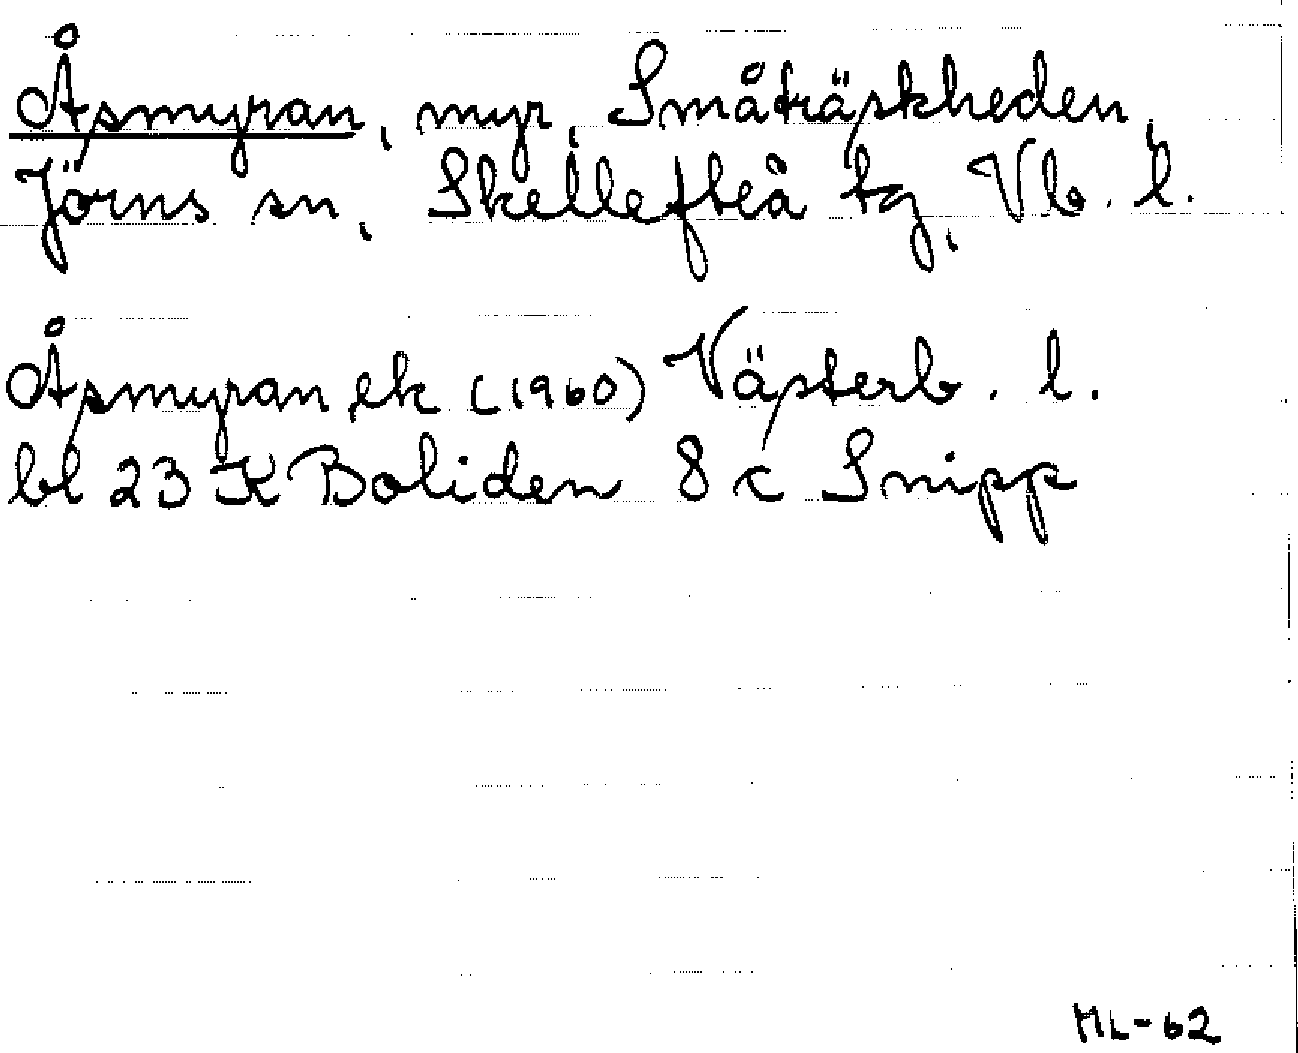 Åsmyran, myr, Småträskheden,
Jörns sn, Skellefteå tg, Vb. l.
Åsmyran ek (1960) Västerb. l.
bl 23 K Boliden 8 c Snipp
ML-62